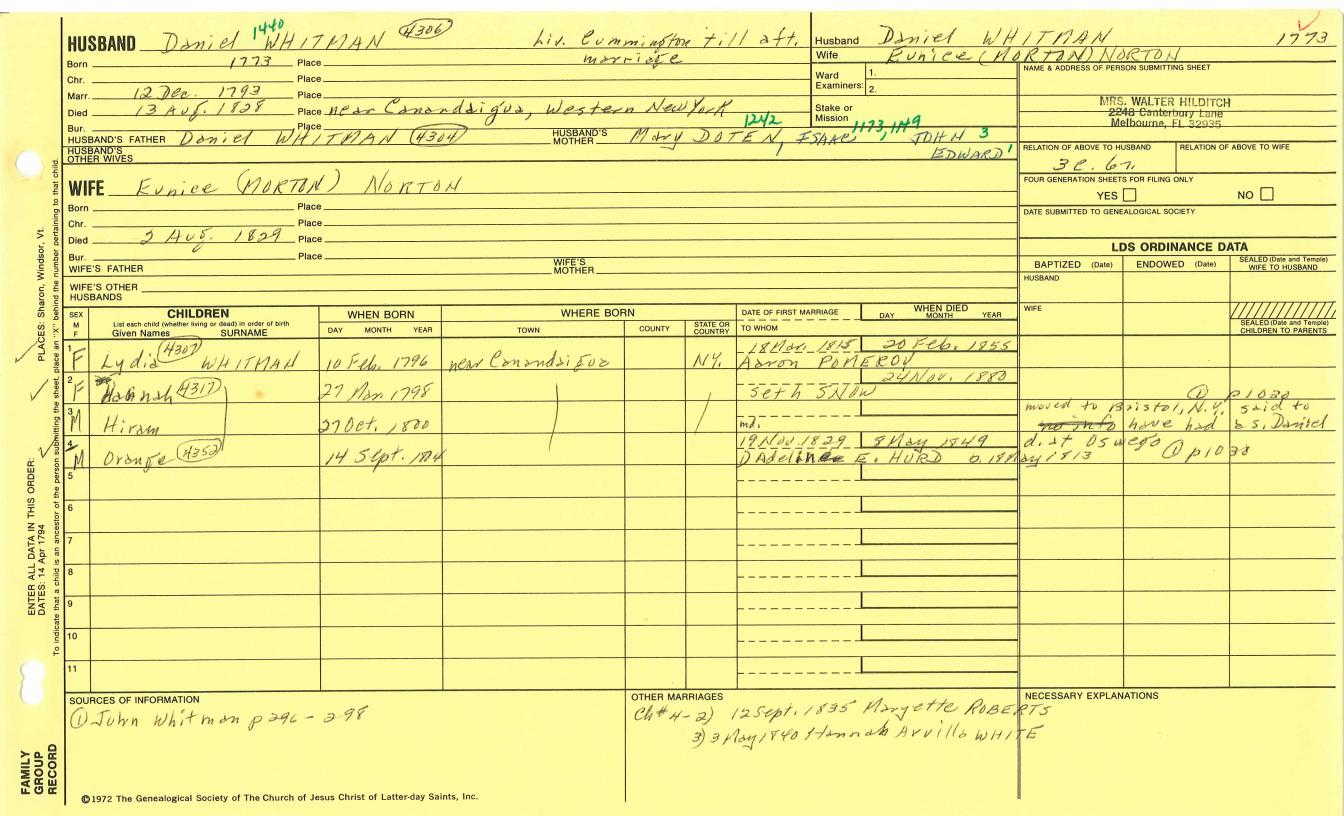 HUSBAND Daniel WHITMAN 1440 4306 Liv. Cummington till aft. marriage
Husband Daniel WHITMAN 1773
Wife Eunice (MORTON) NORTON
Born 1773 Place
Chr. Place
Marr. 12 Dec. 1793 Place
Died 13 Aug. 1828 Place near Canandaigua, Western New York
Bur. Place
Ward Examiners: 1. 2.
Stake or Mission
HUSBAND'S FATHER Daniel WHITMAN 4304 HUSBAND'S MOTHER Mary DOTEN, 1242 ISAAC 1173, 1149 JOHN 3 EDWARD 1
HUSBAND'S OTHER WIVES
NAME & ADDRESS OF PERSON SUBMITTING SHEET
MRS. WALTER HILDITCH
2248 Canterbury Lane
Melbourne, FL 32935
RELATION OF ABOVE TO HUSBAND
3c. 6r.
RELATION OF ABOVE TO WIFE
FOUR GENERATION SHEETS FOR FILING ONLY
YES NO
DATE SUBMITTED TO GENEALOGICAL SOCIETY
WIFE Eunice (MORTON) NORTON
Born Place
Chr. Place
Died 2 Aug. 1829 Place
Bur. Place
WIFE'S FATHER WIFE'S MOTHER
WIFE'S OTHER HUSBANDS
LDS ORDINANCE DATA
BAPTIZED (Date) ENDOWED (Date) SEALED (Date and Temple) WIFE TO HUSBAND
HUSBAND
WIFE
SEALED (Date and Temple) CHILDREN TO PARENTS
SEX M F
CHILDREN
List each child (whether living or dead) in order of birth
Given Names SURNAME
WHEN BORN
DAY MONTH YEAR
WHERE BORN
TOWN COUNTY STATE OR COUNTRY
DATE OF FIRST MARRIAGE
TO WHOM
WHEN DIED
DAY MONTH YEAR
1 F Lydia 4307 WHITMAN 10 Feb. 1796 near Canandaigua N.Y. 18 Mar. 1815 20 Feb. 1855
Aaron POMEROY
2 F Hannah 4317 27 Mar 1798 24 Nov. 1880
Seth SNOW ① p 1038
3 M Hiram 27 Oct. 1800 md. moved to Bristol, N.Y. said to
no info have had a s. Daniel
4 M Orange 4352 14 Sept. 1804 19 Nov 1829 8 May 1849 d. at Oswego
Adeline E. HURD b. 18 May 1813 ① p 1038
5
6
7
8
9
10
11
SOURCES OF INFORMATION
① John Whitman p 296-298
OTHER MARRIAGES
Ch# 4-2) 12 Sept. 1835 Maryette ROBERTS
3) 3 May 1840 Hannah Arvilla WHITE
NECESSARY EXPLANATIONS
©1972 The Genealogical Society of The Church of Jesus Christ of Latter-day Saints, Inc.
FAMILY GROUP RECORD
ENTER ALL DATA IN THIS ORDER:
DATES: 14 Apr 1794
PLACES: Sharon, Windsor, Vt.
To indicate that a child is an ancestor of the person submitting the sheet, place an "X" behind the number pertaining to that child.